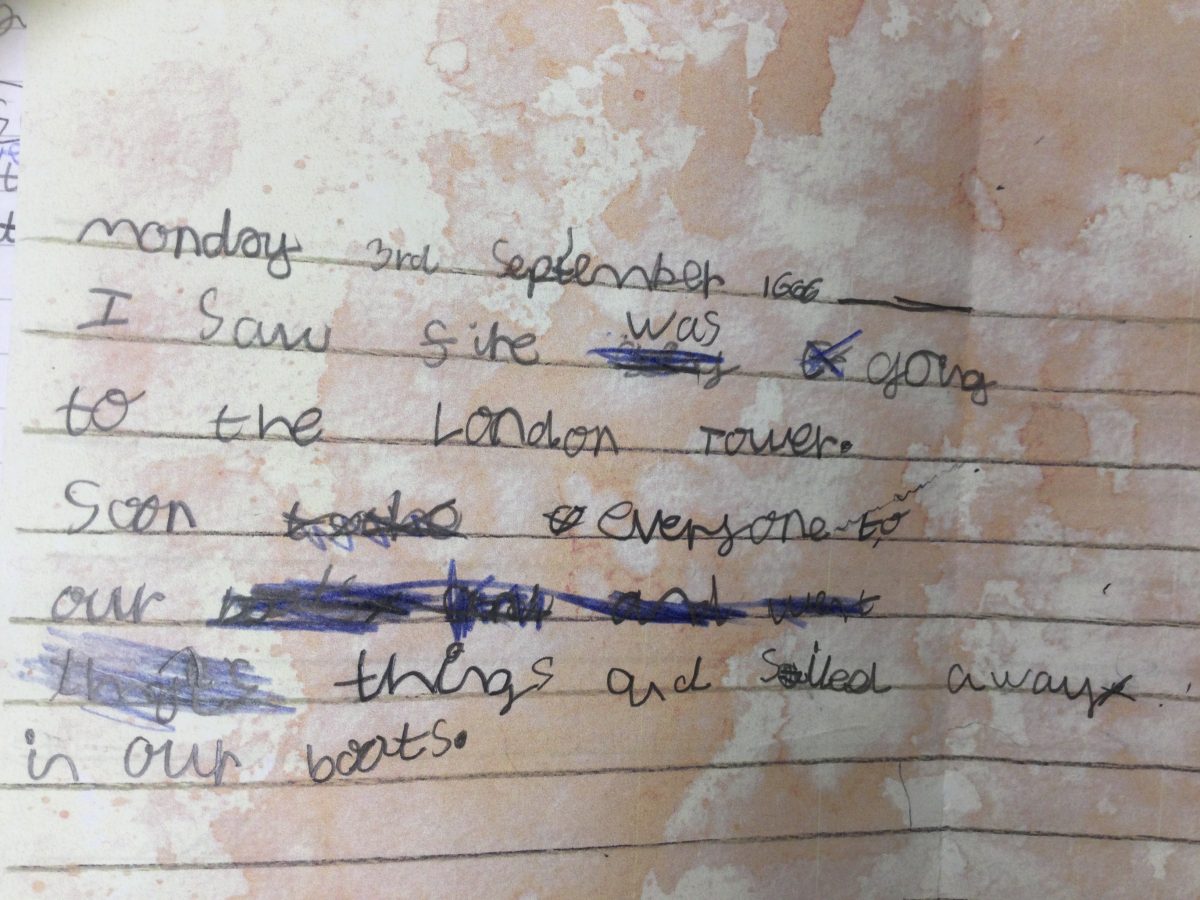 monday 3rd September 1666
I Saw fire was going
to the London Tower.
Soon everyone to
our
things and sailed away
in our boats.